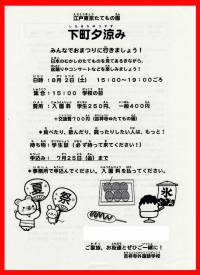 江戸東京たてもの園
下町夕涼み
みんなでおまつりに行きましょう！
日本のむかしのたてものを見てあるきながら、
盆踊りやコンサートなどを楽しみましょう！
日時：8月2日（土） 15：00～19：00ごろ
集合：15：00 学校の前
費用：入園料 学生250円、一般400円
＊交通費700円
＊食べたり、飲んだり、買ったりしたい人は、もっと！
持ち物：学生証（必ず持って来てください！）
申込み： 7月25日（金）まで
＊事務所で申込んでください。入園料を払ってください。
夏
祭
氷
ご家族、お友達とぜひご一緒に！
吉祥寺外国語学校